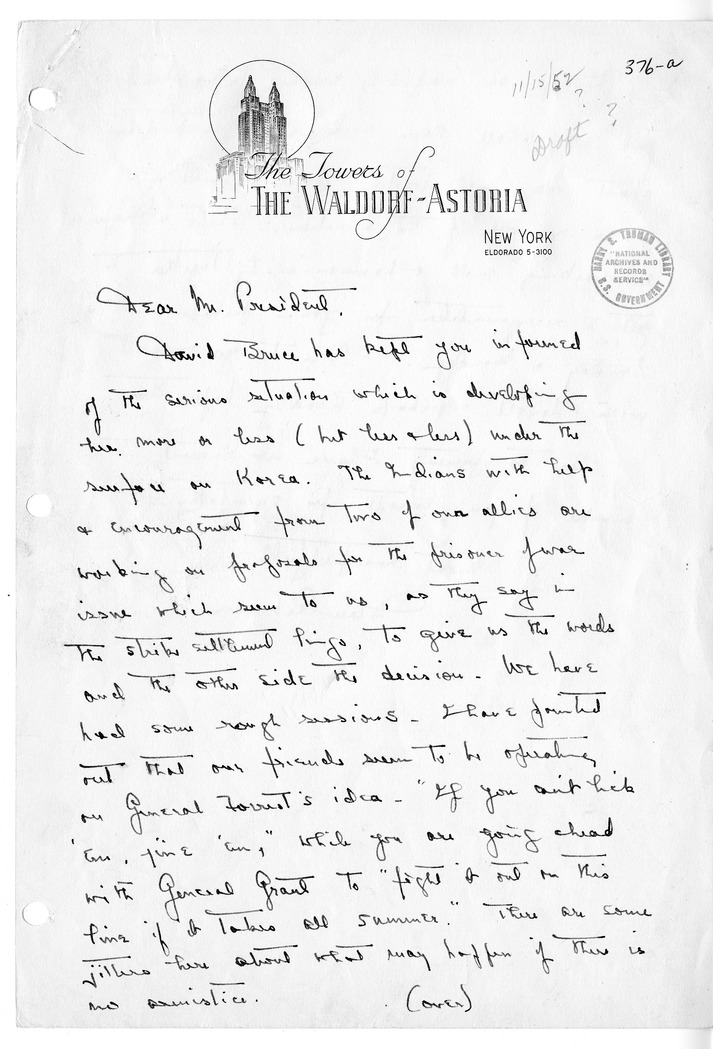 376-a
11/15/52
?
Draft ?
The Towers of
THE WALDORF-ASTORIA
NEW YORK
ELDORADO 5-3100
HARRY S. TRUMAN LIBRARY
"NATIONAL
ARCHIVES AND
RECORDS
SERVICE"
U.S. GOVERNMENT
Dear Mr. President,
David Bruce has kept you informed
of the serious situation which is developing
here more or less (but less & less) under the
surface on Korea. The Indians with help
& encouragement from two of our allies are
working on proposals for the prisoner of war
issue which seem to us, as they say in
the strike settlement lingo, to give us the words
and the other side the decision. We have
had some rough sessions. I have pointed
out that our friends seem to be operating
on General Forrest's idea - "If you can't lick
'em, jine 'em," while you are going ahead
with General Grant to "fight it out on this
line if it takes all summer." There are some
jitters here about what may happen if there is
no armistice. (over)